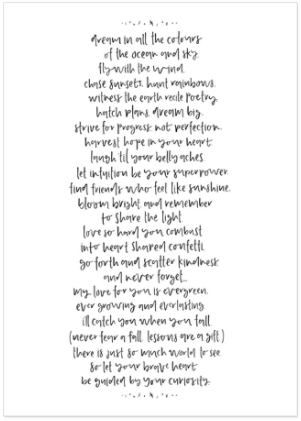 dream in all the colours
of the ocean and sky.
fly with the wind.
chase sunsets. hunt rainbows.
witness the earth recite poetry.
hatch plans. dream big.
strive for progress. not perfection.
harvest hope in your heart.
laugh til your belly aches.
let intuition be your superpower.
find friends who feel like sunshine.
bloom bright and remember
to share the light.
love so hard you combust
into heart shaped confetti.
go forth and scatter kindness.
and never forget...
my love for you is evergreen.
ever growing and everlasting.
i'll catch you when you fall.
(never fear a fall. lessons are a gift.)
there is just so much world to see.
so let your brave heart
be guided by your curiosity.